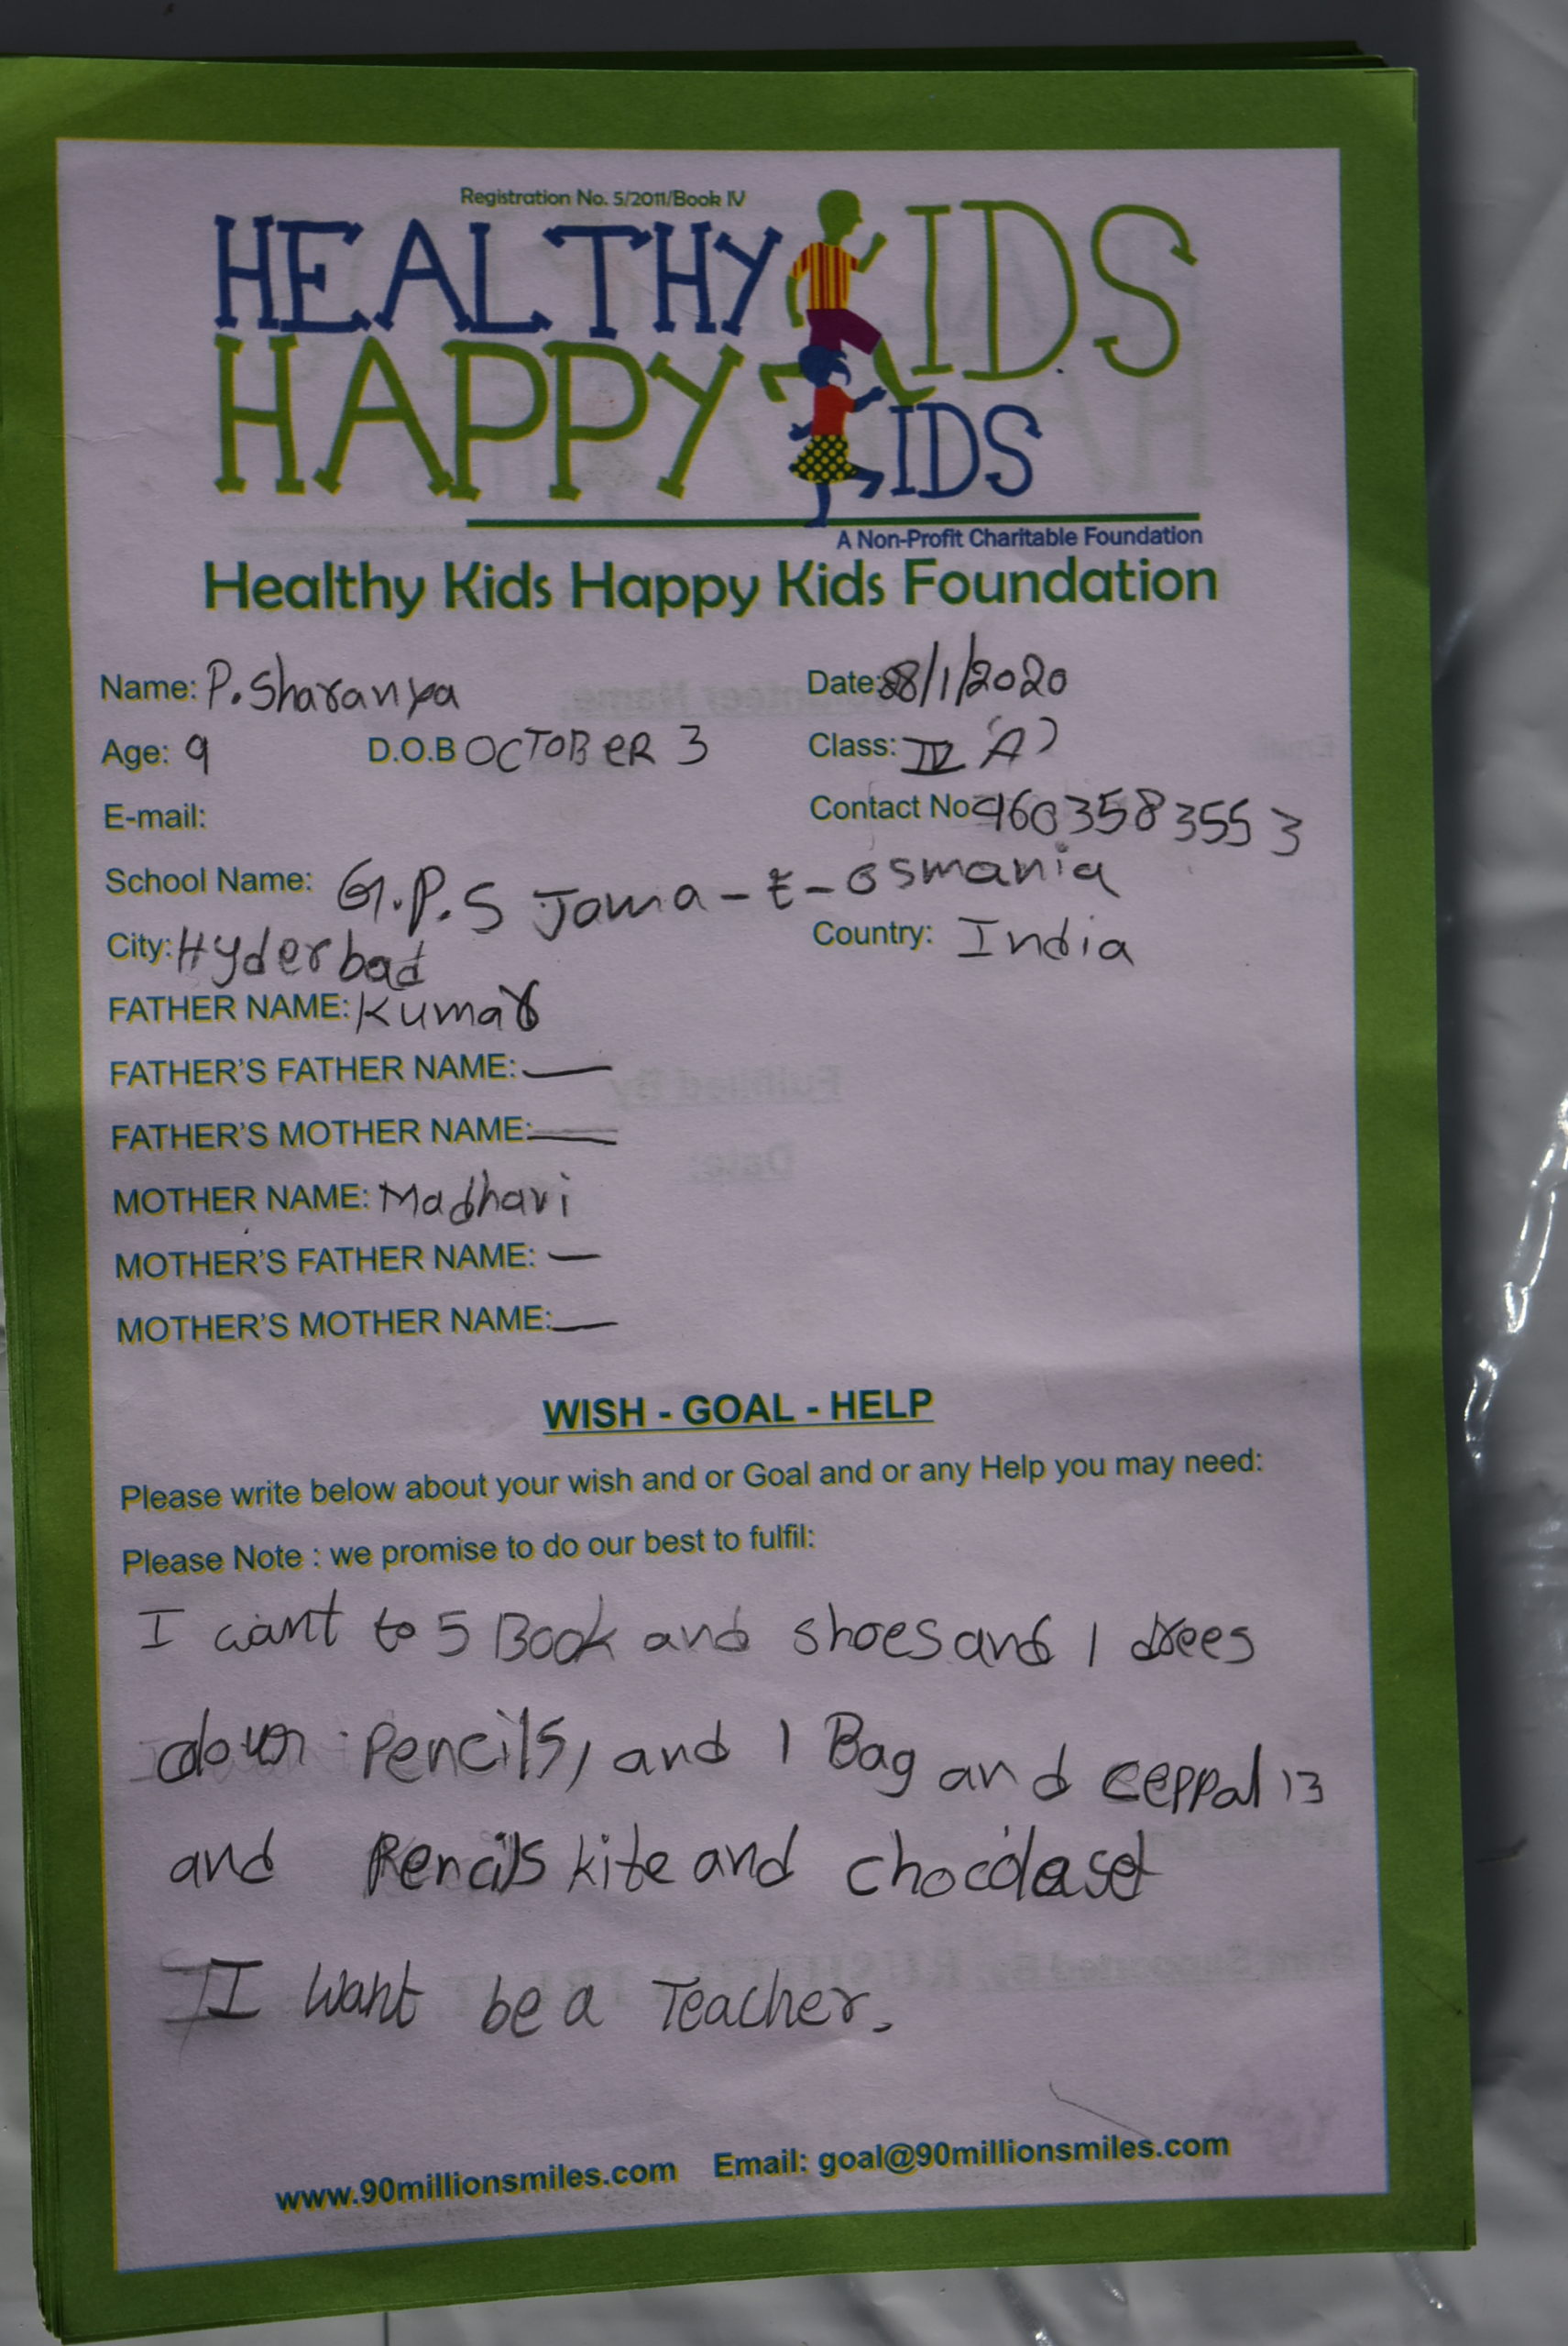 Registration No. 5/2011/Book IV
HEALTHY KIDS
HAPPY KIDS
A Non-Profit Charitable Foundation
Healthy Kids Happy Kids Foundation
Name: P. Sharanya Date: 28/1/2020
Age: 9 D.O.B OCTOBER 3 Class: IV 'A'
E-mail: Contact No 9603583553
School Name: G.P.S Jama-E-osmania
City: Hyderbad Country: India
FATHER NAME: Kumar
FATHER'S FATHER NAME: —
FATHER'S MOTHER NAME: —
MOTHER NAME: Madhavi
MOTHER'S FATHER NAME: —
MOTHER'S MOTHER NAME: —
WISH - GOAL - HELP
Please write below about your wish and or Goal and or any Help you may need:
Please Note : we promise to do our best to fulfil:
I want to 5 Book and shoes and 1 drees
Pencils, and 1 Bag and ceppal 13
and Pencils kite and
I want be a Teacher.
www.90millionsmiles.com Email: goal@90millionsmiles.com